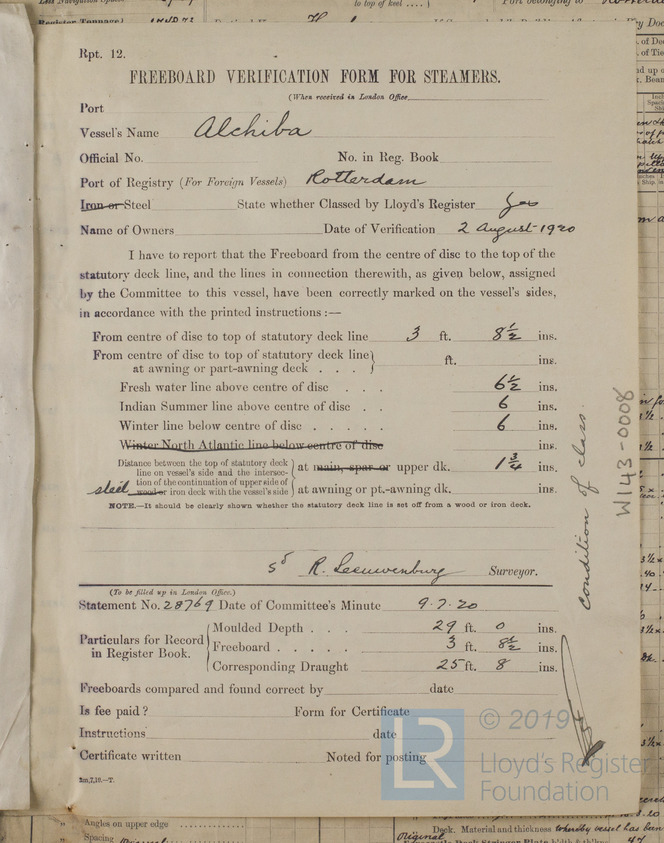 Rpt. 12.
FREEBOARD VERIFICATION FORM FOR STEAMERS.
(When received in London Office
Port
Vessel's Name Alchiba
Official No. No. in Reg. Book
Port of Registry (For Foreign Vessels) Rotterdam
Iron or Steel State whether Classed by Lloyd's Register Yes
Name of Owners Date of Verification 2 August 1920
I have to report that the Freeboard from the centre of disc to the top of the
statutory deck line, and the lines in connection therewith, as given below, assigned
by the Committee to this vessel, have been correctly marked on the vessel's sides,
in accordance with the printed instructions :—
From centre of disc to top of statutory deck line 3 ft. 8½ ins.
From centre of disc to top of statutory deck line
at awning or part-awning deck . . . ft. ins.
Fresh water line above centre of disc . . . 6½ ins.
Indian Summer line above centre of disc . . 6 ins.
Winter line below centre of disc . . . . . 6 ins.
Winter North Atlantic line below centre of disc ins.
Distance between the top of statutory deck
line on vessel's side and the intersec- at main, spar or upper dk. 1¾ ins.
tion of the continuation of upper side of
steel wood or iron deck with the vessel's side at awning or pt.-awning dk. ins.
NOTE.—It should be clearly shown whether the statutory deck line is set off from a wood or iron deck.
sd R. Leeuwenburg Surveyor.
(To be filled up in London Office.)
Statement No. 28769 Date of Committee's Minute 9.7.20
Particulars for Record
in Register Book.
Moulded Depth . . . 29 ft. 0 ins.
Freeboard . . . . . 3 ft. 8½ ins.
Corresponding Draught 25 ft. 8 ins.
Freeboards compared and found correct by date
Is fee paid? Form for Certificate
Instructions date
Certificate written Noted for posting
2m,7,19.—T.
condition of class.
W143-0008
LR
© 2019
Lloyd's Register
Foundation
Angles on upper edge
Spacing
Original
Deck. Material and thickness whereby vessel has been